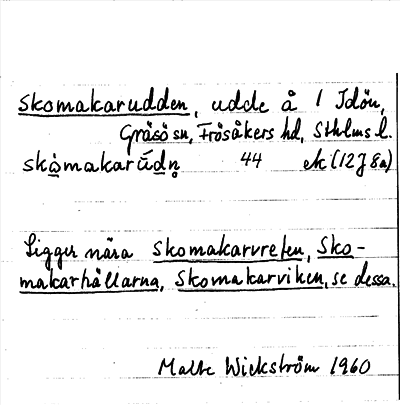 Skomakarudden, udde å I Idön,
Gräsö sn, Frösåkers hd, Sthlms l.
skò̱makarúdn̥ 44 ek (12J8a)
Ligger nära Skomakarvreten, Sko-
makarhällarna, Skomakarviken, se dessa.
Malte Wickström 1960